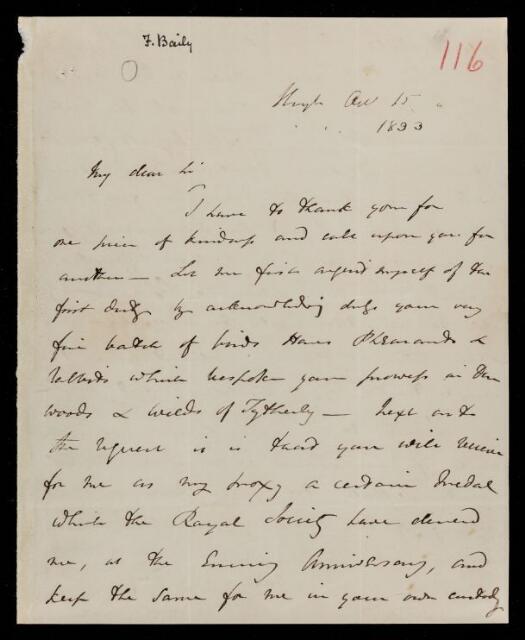 F. Baily
116
Oct 15
1833
My dear Sir
I have to thank you for
one piece of kindness and call upon you for
another — Let me first acquit myself of the
first duty by acknowledging duly your very
fine batch of birds Hares Pheasants &
rabbits which bespoke your prowess in the
woods & wilds of Tytherly — Next as to
the request it is that you will receive
for me as my proxy a certain medal
which the Royal Society have decreed
me, at the Ensuing Anniversary, and
keep the same for me in your own custody